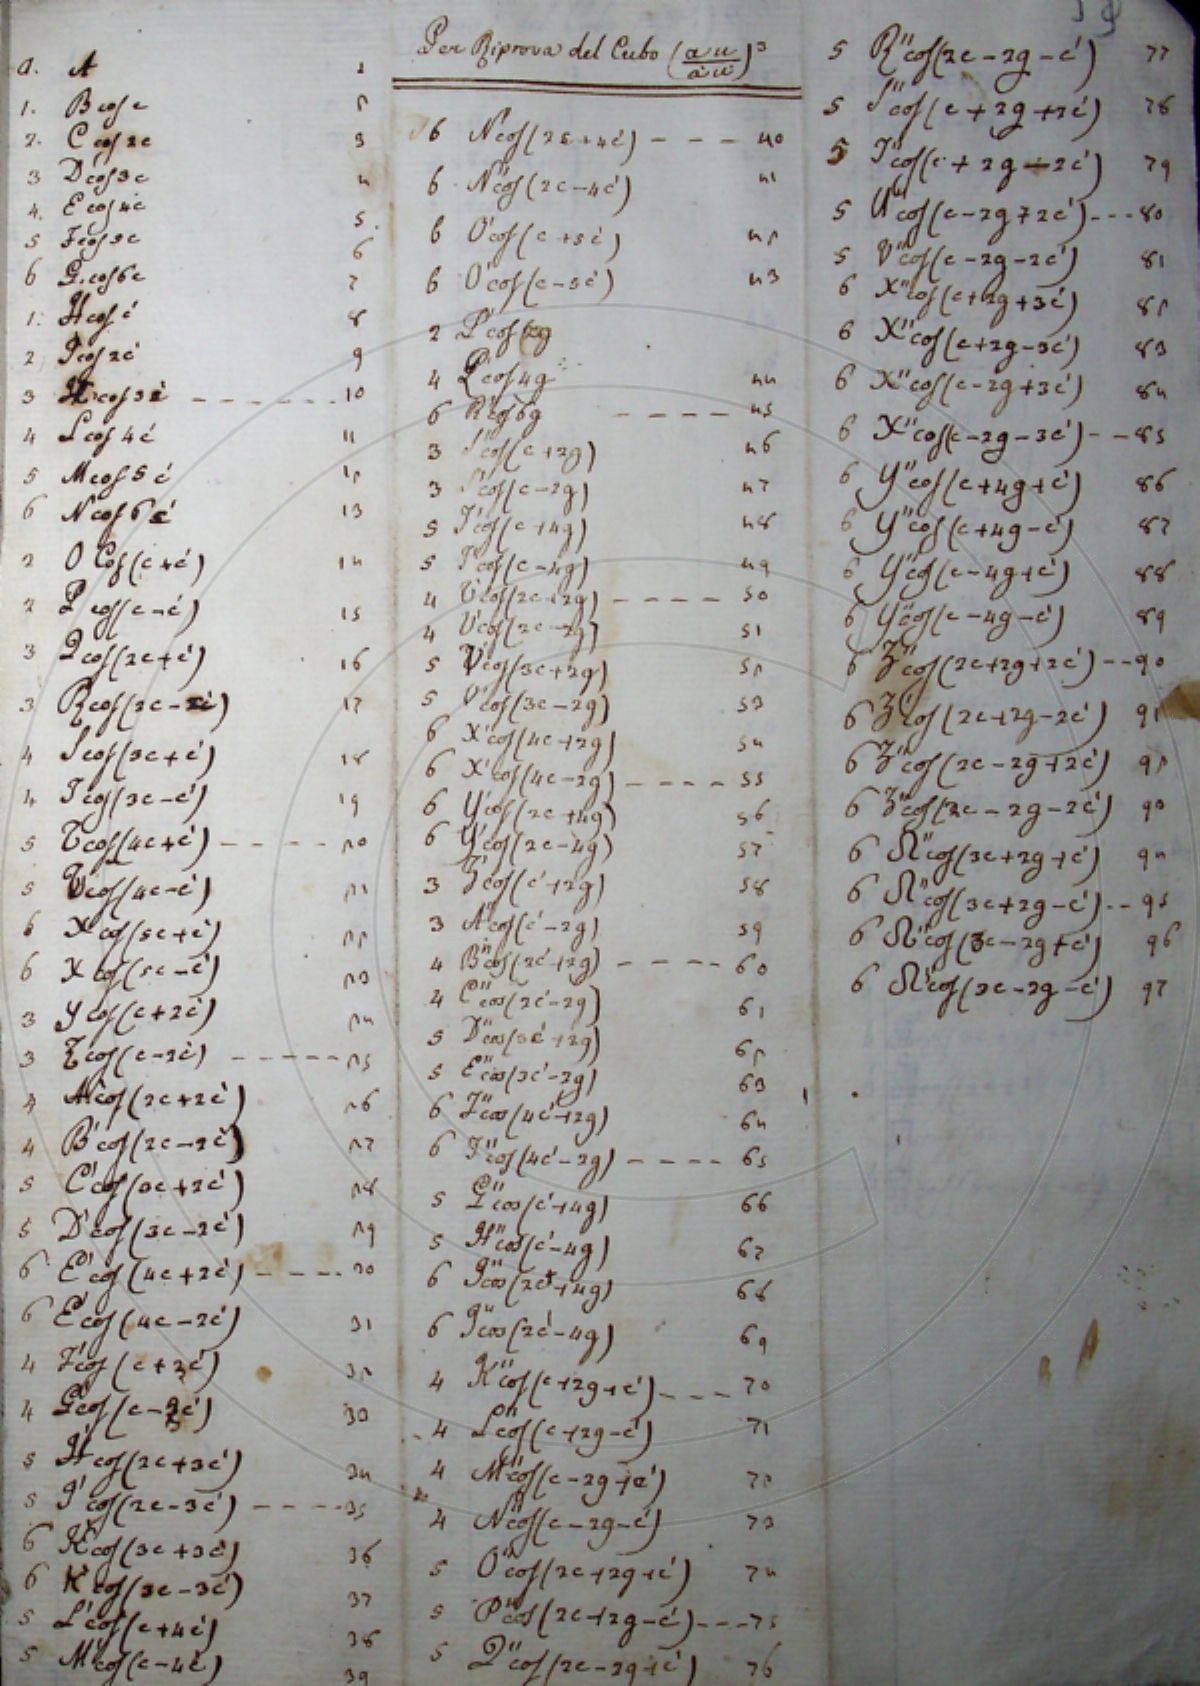 0. A 1
1. B cos c 2
2. C cos 2c 3
3 D cos 3c 4
4. E cos 4c 5
5 F cos 5c 6
6 G cos 6c 7
1. H cos c' 8
2 I cos 2c' 9
3 K cos 3c' - - - - - - 10
4 L cos 4c' 11
5 M cos 5c' 12
6 N cos 6c' 13
2 O Cos (c+c') 14
2 P cos (c-c') 15
3 Q cos (2c+c') 16
3 R cos (2c-c') 17
4 S cos (3c+c') 18
4 T cos (3c-c') 19
5 U cos (4c+c') - - - - - 20
5 V cos (4c-c') 21
6 X cos (5c+c') 22
6 X cos (5c-c') 23
3 Y cos (c+2c') 24
3 Z cos (c-2c') - - - - - 25
4 A' cos (2c+2c') 26
4 B' cos (2c-2c') 27
5 C' cos (3c+2c') 28
5 D' cos (3c-2c') 29
6 E' cos (4c+2c') - - - - 30
6 E' cos (4c-2c') 31
4 F' cos (c+3c') 32
4 G' cos (c-3c') 33
5 H' cos (2c+3c') 34
5 I' cos (2c-3c') - - - - 35
6 K' cos (3c+3c') 36
6 K' cos (3c-3c') 37
5 L' cos (c+4c') 38
5 M' cos (c-4c') 39
Per Riprova del Cubo (au/a'u')³
6 N' cos (2c+4c') - - - 40
6 N' cos (2c-4c') 41
6 O' cos (c+5c') 42
6 O' cos (c-5c') 43
2 P' cos 2g
4 Q' cos 4g 44
6 R' cos 6g - - - - 45
3 S' cos (c+2g) 46
3 S' cos (c-2g) 47
5 T' cos (c+4g) 48
5 T' cos (c-4g) 49
4 U' cos (2c+2g) - - - - 50
4 U' cos (2c-2g) 51
5 V' cos (3c+2g) 52
5 V' cos (3c-2g) 53
6 X' cos (4c+2g) 54
6 X' cos (4c-2g) - - - - 55
6 Y' cos (2c+4g) 56
6 Y' cos (2c-4g) 57
3 Z' cos (c'+2g) 58
3 A'' cos (c'-2g) 59
4 B'' cos (2c'+2g) - - - - 60
4 C'' cos (2c'-2g) 61
5 D'' cos (3c'+2g) 62
5 E'' cos (3c'-2g) 63
6 F'' cos (4c'+2g) 64
6 F'' cos (4c'-2g) - - - - 65
5 G'' cos (c'+4g) 66
5 H'' cos (c'-4g) 67
6 I'' cos (2c'+4g) 68
6 I'' cos (2c'-4g) 69
4 K'' cos (c+2g+c') - - - 70
4 L'' cos (c+2g-c') 71
4 M'' cos (c-2g+c') 72
4 N'' cos (c-2g-c') 73
5 O'' cos (2c+2g+c') 74
5 P'' cos (2c+2g-c') - - - 75
5 Q'' cos (2c-2g+c') 76
5 R'' cos (2c-2g-c') 77
5 S'' cos (c+2g+2c') 78
5 T'' cos (c+2g-2c') 79
5 U'' cos (c-2g+2c') - - - 80
5 V'' cos (c-2g-2c') 81
6 X'' cos (c+2g+3c') 82
6 X'' cos (c+2g-3c') 83
6 X'' cos (c-2g+3c') 84
6 X'' cos (c-2g-3c') - - 85
6 Y'' cos (c+4g+c') 86
6 Y'' cos (c+4g-c') 87
6 Y'' cos (c-4g+c') 88
6 Y'' cos (c-4g-c') 89
6 Z'' cos (2c+2g+2c') - - 90
6 Z'' cos (2c+2g-2c') 91
6 Z'' cos (2c-2g+2c') 92
6 Z'' cos (2c-2g-2c') 93
6 Ω'' cos (3c+2g+c') 94
6 Ω'' cos (3c+2g-c') - - 95
6 Ω'' cos (3c-2g+c') 96
6 Ω'' cos (3c-2g-c') 97